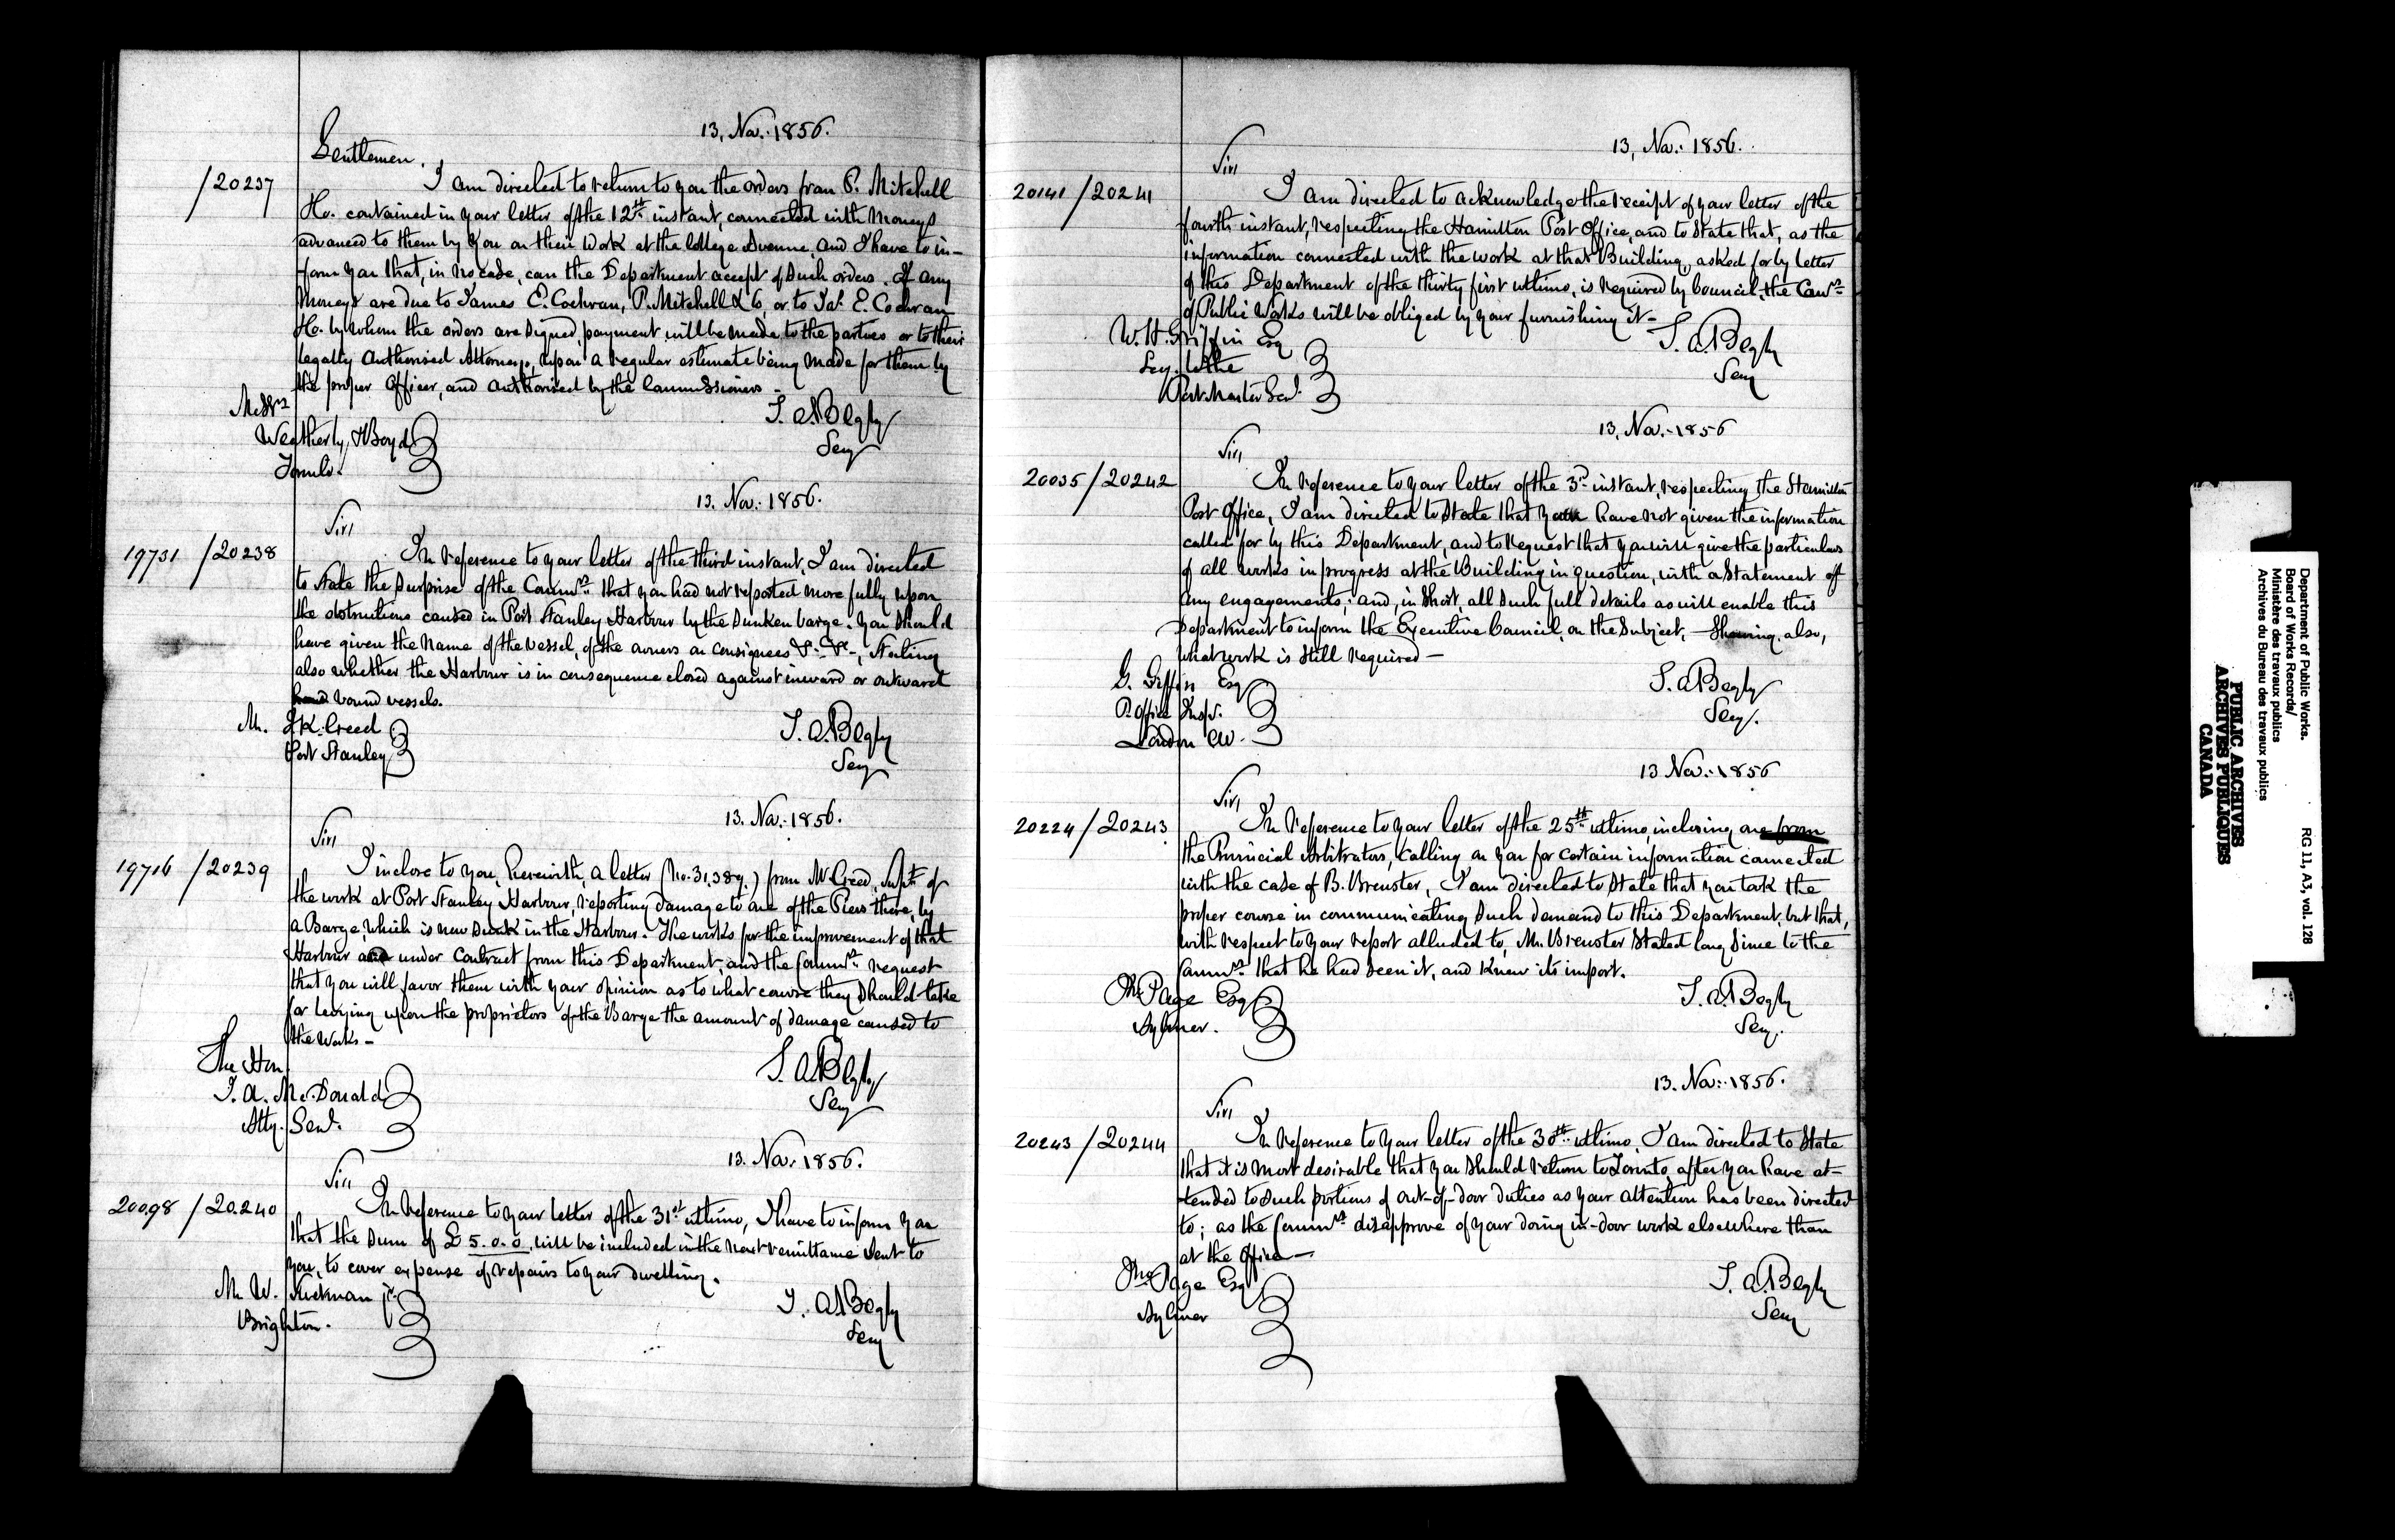 13. Nov. 1856.
Gentlemen.
/20237
I am directed to return to you the orders from P. Mitchell
&Co. contained in your letter of the 12th instant, connected with moneys
advanced to them by you on their work at the College Avenue, and I have to in-
form you that, in no case, can the Department accept of such orders. If any
moneys are due to James E. Cochran, P. Mitchell & Co, or to Jas. E. Cochran
&Co. by whom the orders are signed, payment will be made to the parties or to their
legally authorised Attorneys, upon a regular estimate being made for them by
the proper Officer, and authorised by the Commissioners -
Messrs
Weatherly, & Boyd
Toronto.
T. A. Begly
Secy
13. Nov. 1856.
Sir,
19731 /20238
In reference to your letter of the third instant, I am directed
to state the surprise of the Commrs that you had not reported more fully upon
the obstructions caused in Port Stanley Harbour by the sunken barge. You should
have given the name of the vessel, of the owners or consignees &c &c -, Stating
also whether the Harbour is in consequence closed against inward or outward
bound vessels.
Mr. J K. Creed
Port Stanley
T. A. Begly
Secy
13. Nov. 1856.
Sir,
19716 /20239
I inclose to you, herewith, a letter (No. 31,389.) from Mr Creed, Supt. of
the work at Port Stanley Harbour, reporting damage to one of the Piers there, by
a Barge, which is now sunk in the Harbour. The works for the improvement of that
Harbour are under Contract from this Department, and the Commrs request
that you will favor them with your opinion as to what course they should take
for levying upon the proprietors of the Barge the amount of damage caused to
the works -
The Hon
J. A. McDonald
Atty. Genl.
T. A. Begly
Secy
13. Nov. 1856.
Sir,
20098 /20.240
In reference to your letter of the 31st ultimo, I have to inform you
that the sum of £ 5.0.0, will be included in the next remittance sent to
you, to cover expense of repairs to your dwelling.
Mr. W. jr.
Brighton.
T. A. Begly
Secy
13. Nov. 1856.
Sir,
20141 /20241
I am directed to acknowledge the receipt of your letter of the
fourth instant, respecting the Hamilton Post Office, and to state that, as the
information connected with the work at that Building, asked for by letter
of this Department of the thirty first ultimo, is required by Council, the Comrs
of Public Works will be obliged by your furnishing it -
W. H. Griffin Esq
Secy. to the
Post Master Genl.
T. A. Begly
Secy
13. Nov. 1856
Sir,
20035 /20242
In reference to your letter of the 3rd instant, respecting the Hamilton
Post Office, I am directed to state that you have not given the information
called for by this Department, and to request that you will give the particulars
of all works in progress at the Building in question, with a statement of
any engagements; and, in short, all such full details as will enable this
Department to inform the Executive Council, on the subject, - Showing, also,
what work is still required -
G. Griffin Esq
P. Office Insp.
London CW.
T. A. Begly
Secy.
13 Nov. 1856
Sir,
20224 /20243
In reference to your letter of the 25th ultimo, inclosing one from
the Provincial Arbitrators, calling on you for certain information connected
with the case of B. Brewster, I am directed to state that you took the
proper course in communicating such demand to this Department, but that,
with respect to your report alluded to, Mr. Brewster stated long since to the
Commrs. that he had seen it, and knew its import.
Jno. Page Esq
Aylmer.
T. A. Begly
Secy.
13. Nov. 1856.
Sir,
20243 /20244
In reference to your letter of the 30th ultimo, I am directed to state
that it is most desirable that you should return to Toronto, after you have at-
tended to such portions of out-of-door duties as your attention has been directed
to; as the Commrs disapprove of your doing in-door work elsewhere than
at the Office -
Jno Page Esq
Aylmer
T. A. Begly
Secy
Department of Public Works.
Board of Works Records/
Ministère des travaux publics
Archives du Bureau des travaux publics
RG 11, A3, vol. 128
PUBLIC ARCHIVES
ARCHIVES PUBLIQUES
CANADA